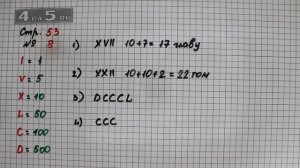 4a5.ru
Стр. 53
№ 8
I = 1
V = 5
X = 10
L = 50
C = 100
D = 500
1) XVII 10+7 = 17 главу
2) XXII 10+10+2 = 22 том
3) DCCCL
4) CCC